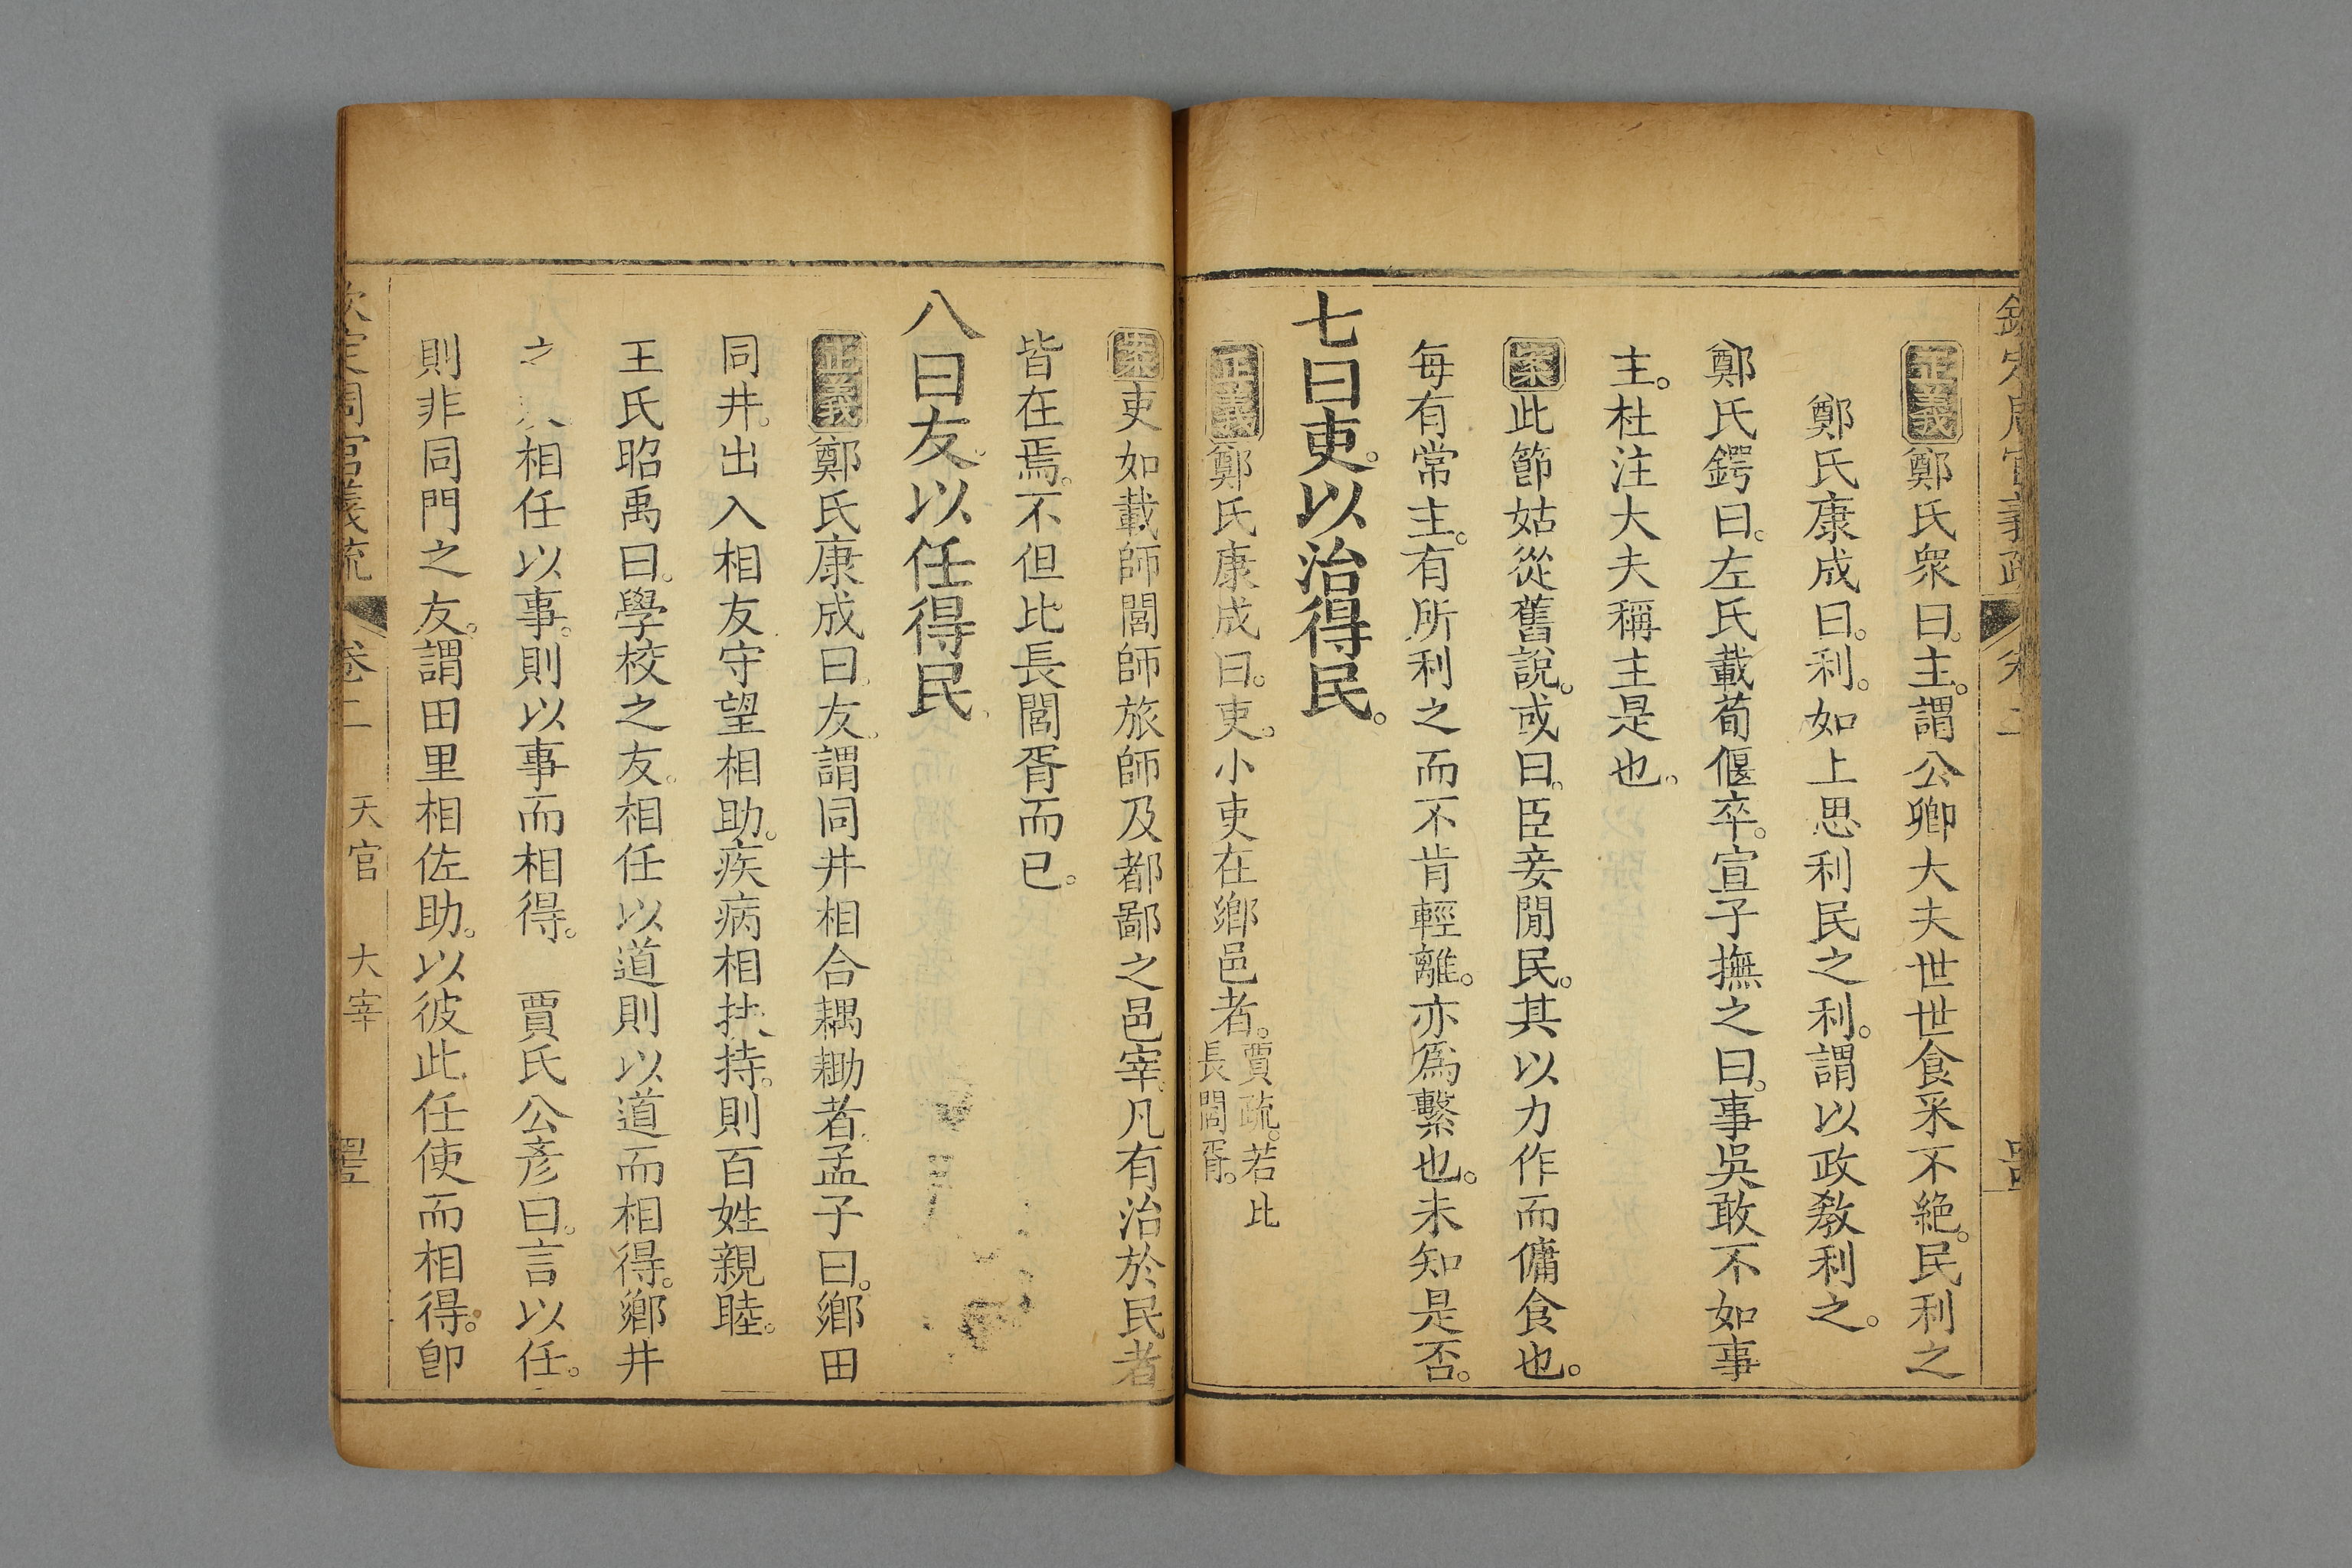 欽定周官義疏 卷二
正義鄭氏衆曰。主。謂公卿大夫世世食采不絶。民利之
鄭氏康成曰。利。如上思利民之利。謂以政敎利之。
鄭氏鍔曰。左氏載荀偃卒。宣子撫之曰。事吳敢不如事
主。杜注大夫稱主是也。
案此節姑從舊說。或曰。臣妾閒民。其以力作而傭食也。
每有常主。有所利之而不肯輕離。亦爲繫也。未知是否。
七曰吏。以治得民。
正義鄭氏康成曰。吏。小吏在鄉邑者。賈疏。若比
長閭胥。
案吏如載師閭師旅師及都鄙之邑宰。凡有治於民者
皆在焉。不但比長閭胥而已。
八曰友。以任得民
正義鄭氏康成曰。友。謂同井相合耦耡者。孟子曰。鄉田
同井。出入相友守望相助。疾病相扶持。則百姓親睦。
王氏昭禹曰。學校之友。相任以道則以道而相得。鄉井
之 相任以事。則以事而相得。 賈氏公彥曰。言以任。
則非同門之友。謂田里相佐助。以彼此任使而相得。卽
欽定周官義疏 卷二 天官 大宰